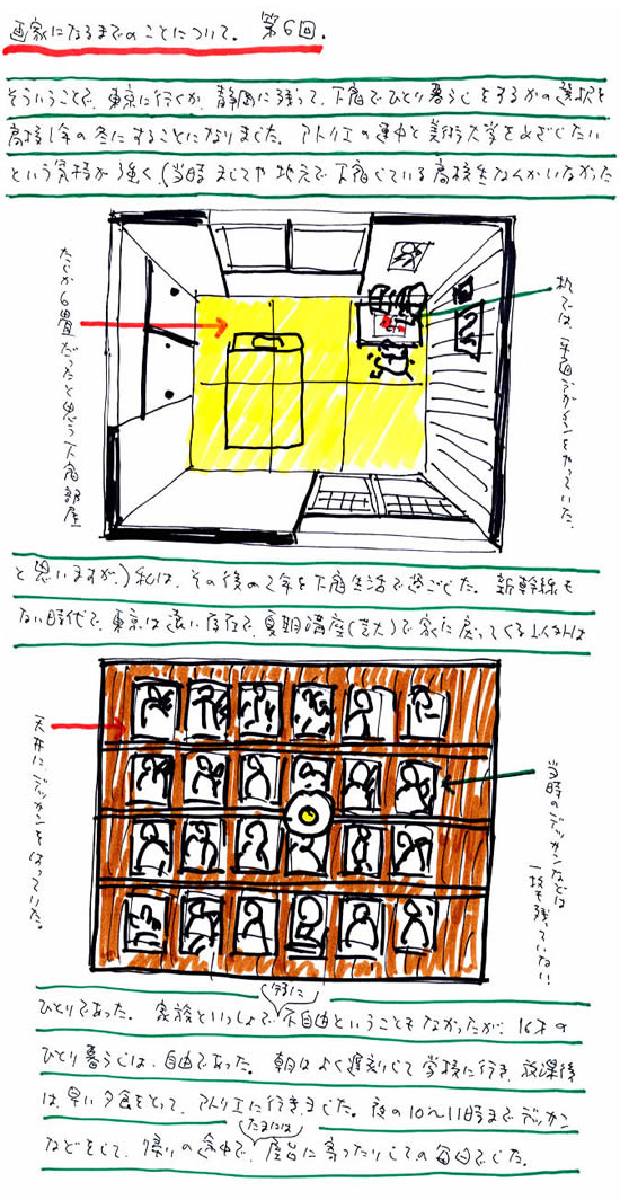 画家になるまでのことについて。 第6回。
そういうことで、東京に行くか、静岡に残って、下宿でひとり暮らしをするかの選択を
高校1年の冬にすることになりました。 アトリエの連中と美術大学をめざしたい
という気持が強く、(当時 まして や 地元で 下宿している高校生なんかいなかった
たしか6畳だったと思う下宿部屋
机では、平面デザインをやっていた。
と思いますが、)私は、その後の2年を下宿生活で過ごした。 新幹線も
ない時代で、東京は遠い存在で、夏期講座(芸大)で家に戻ってくる以外は
天井にデッサンをはっていた。
当時のデッサンなどは
一枚も残っていない!
特に
ひとりであった。 家族といっしょで、不自由ということもなかったが、16才の
ひとり暮らしは、自由であった。 朝はよく遅刻して学校に行き、放課後
は、早い夕食をとって、アトリエに行きました。夜の10〜11時までデッサン
たまには
などをして、帰りの途中で、屋台に寄ったりしての毎日でした。